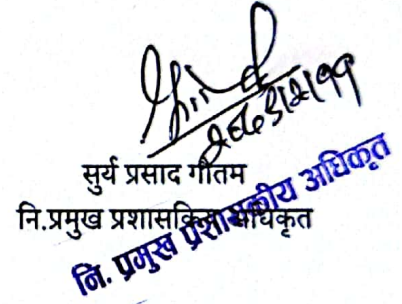 सुर्य प्रसाद गौतम
नि.प्रमुख प्रशासकिय अधिकृत
नि. प्रमुख प्रशासकीय अधिकृत